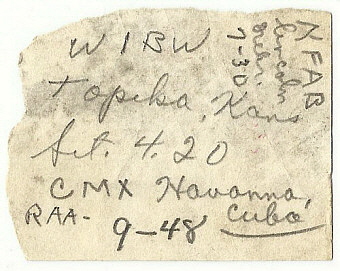 WIBW
Topeka, Kans
Sit. 4.20
CMX Havanna,
Cuba
RAA-
9-48
NFAB
Lincoln
Nebr.
7-30